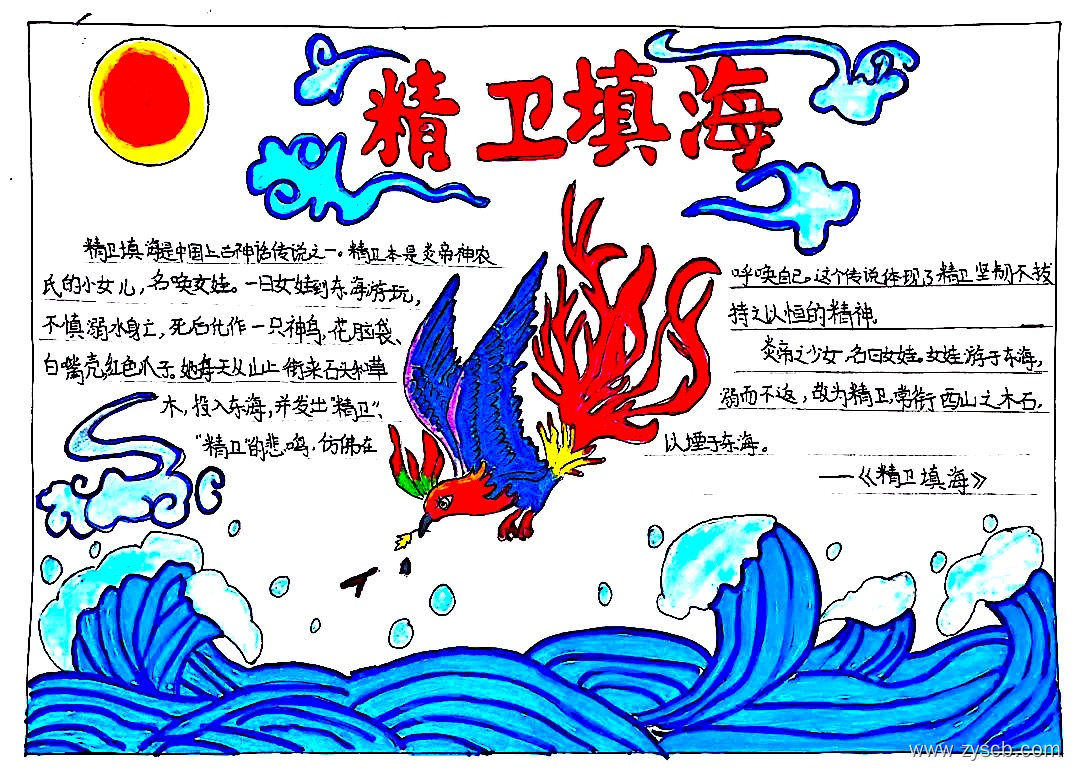 精卫填海
精卫填海是中国上古神话传说之一。精卫本是炎帝神农
氏的小女儿，名唤女娃。一日女娃到东海游玩，
不慎溺水身亡，死后化作一只神鸟，花脑袋、
白嘴壳，红色爪子。她每天从山上衔来石头和草
木，投入东海，并发出"精卫"、
"精卫"的悲鸣，仿佛在
呼唤自己。这个传说体现了精卫坚韧不拔
持之以恒的精神。
炎帝之少女，名曰女娃。女娃游于东海，
溺而不返，故为精卫，常衔西山之木石，
以堙于东海。
——《精卫填海》
www.zyscb.com